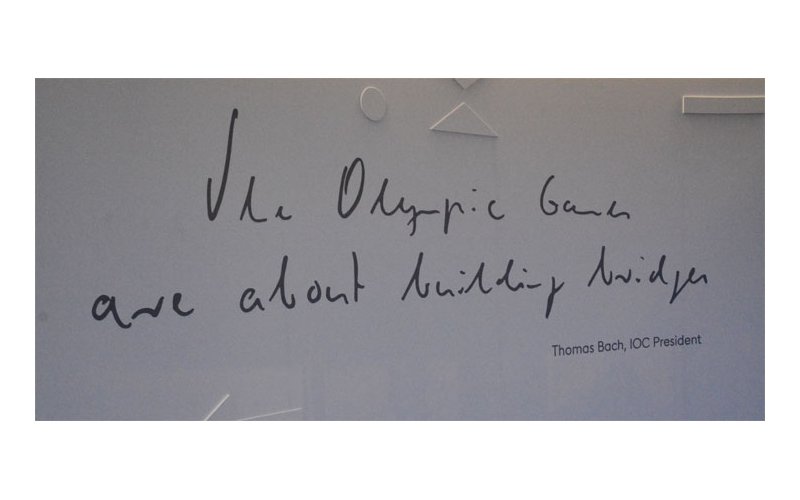 The Olympic Games
are about building bridges
Thomas Bach, IOC President